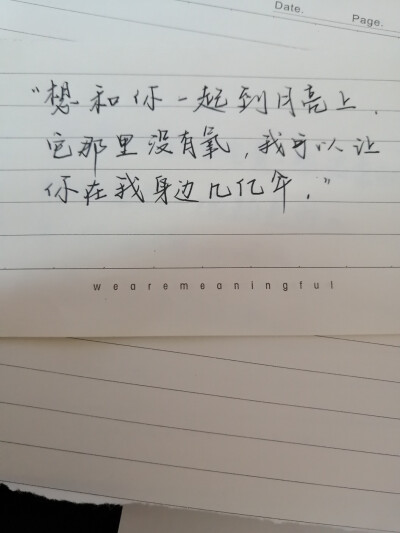 Date.
Page.
“想和你一起到月亮上，
它那里没有氧，我可以让
你在我身边几亿年.”
wearemeaningful